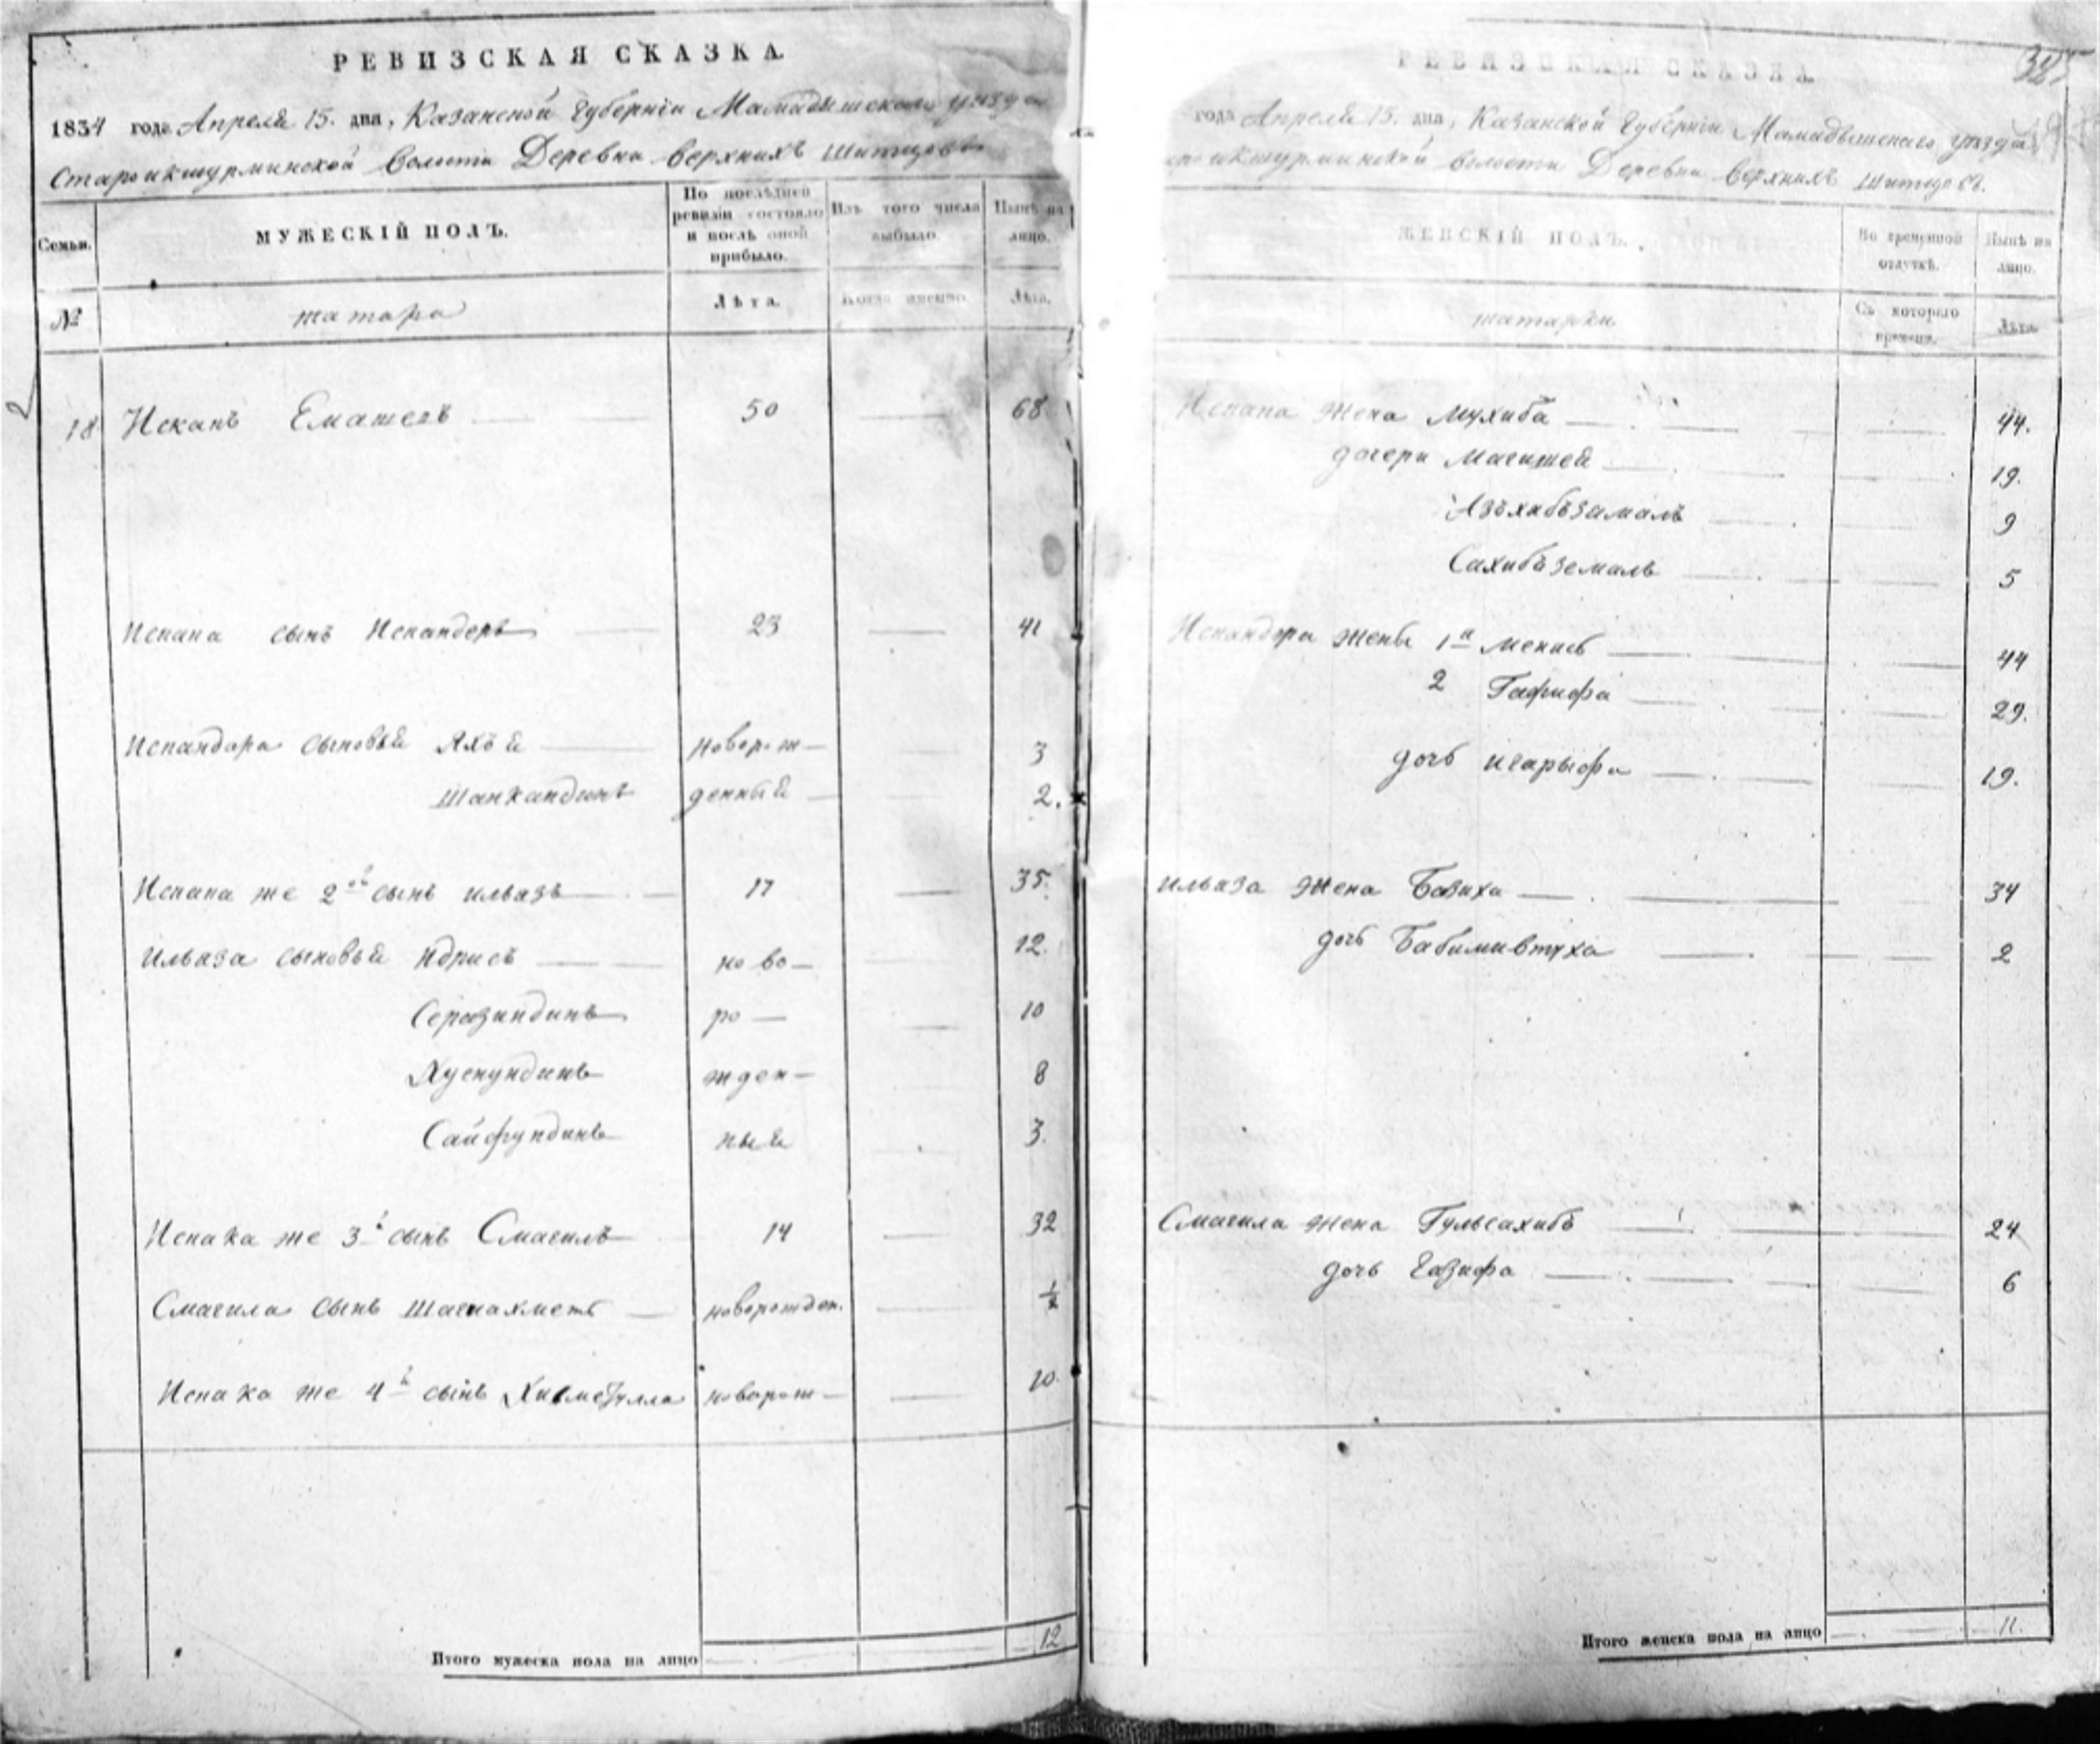 РЕВИЗСКАЯ СКАЗКА.
1834 года Апреля 15. дня, Казанской Губерніи Мамадышскаго уезда
Староикшурминской волости Деревни верхнихъ Шитцовъ
Семьи.
МУЖЕСКІЙ ПОЛЪ.
По послѣдней ревизіи состояло и послѣ оной прибыло.
Изъ того числа выбыло.
Нынѣ на лицо.
№
татара
Лѣта.
Когда именно.
Лѣта.
18 Искакъ Ематевъ 50 68
Искака сынъ Искандеръ 23 41
Искандера сыновья Яхъя новорож- 3
Шанкандинъ денный 2.
Искака же 2ой сынъ ильязъ 17 35.
Ильяза сыновья Идрисъ ново- 12.
Серазиндинъ ро- 10
Хуснундинъ жден- 8
Сайфундинъ ный 3.
Искака же 3й сынъ Смагилъ 14 32
Смагила сынъ Шагиахметъ новорожден. ½
Искака же 4й сынъ Хисметулла новорож- 10.
Итого мужеска пола на лицо 12
РЕВИЗСКАЯ СКАЗКА
года Апреля 15. дня, Казанской Губерніи Мамадышскаго уезда
роикшурминской волости Деревни верхнихъ Шитцовъ.
ЖЕНСКІЙ ПОЛЪ.
Во временной отлучкѣ.
Нынѣ на лицо.
татарки
Съ котораго времени.
Лѣта.
Искака жена Мухиба 44.
дочери Магишей 19.
Азъхабъзямалъ 9
Сахибъземалъ 5
Искандера жены 1я Мекись 44
2 Гафифа 29.
дочь Игарыфа 19.
ильяза жена Базиха 34
дочь Бабимивтуха 2
Смагила жена Гульсахибъ 24
дочь Газифа 6
Итого женска пола на лицо 11.